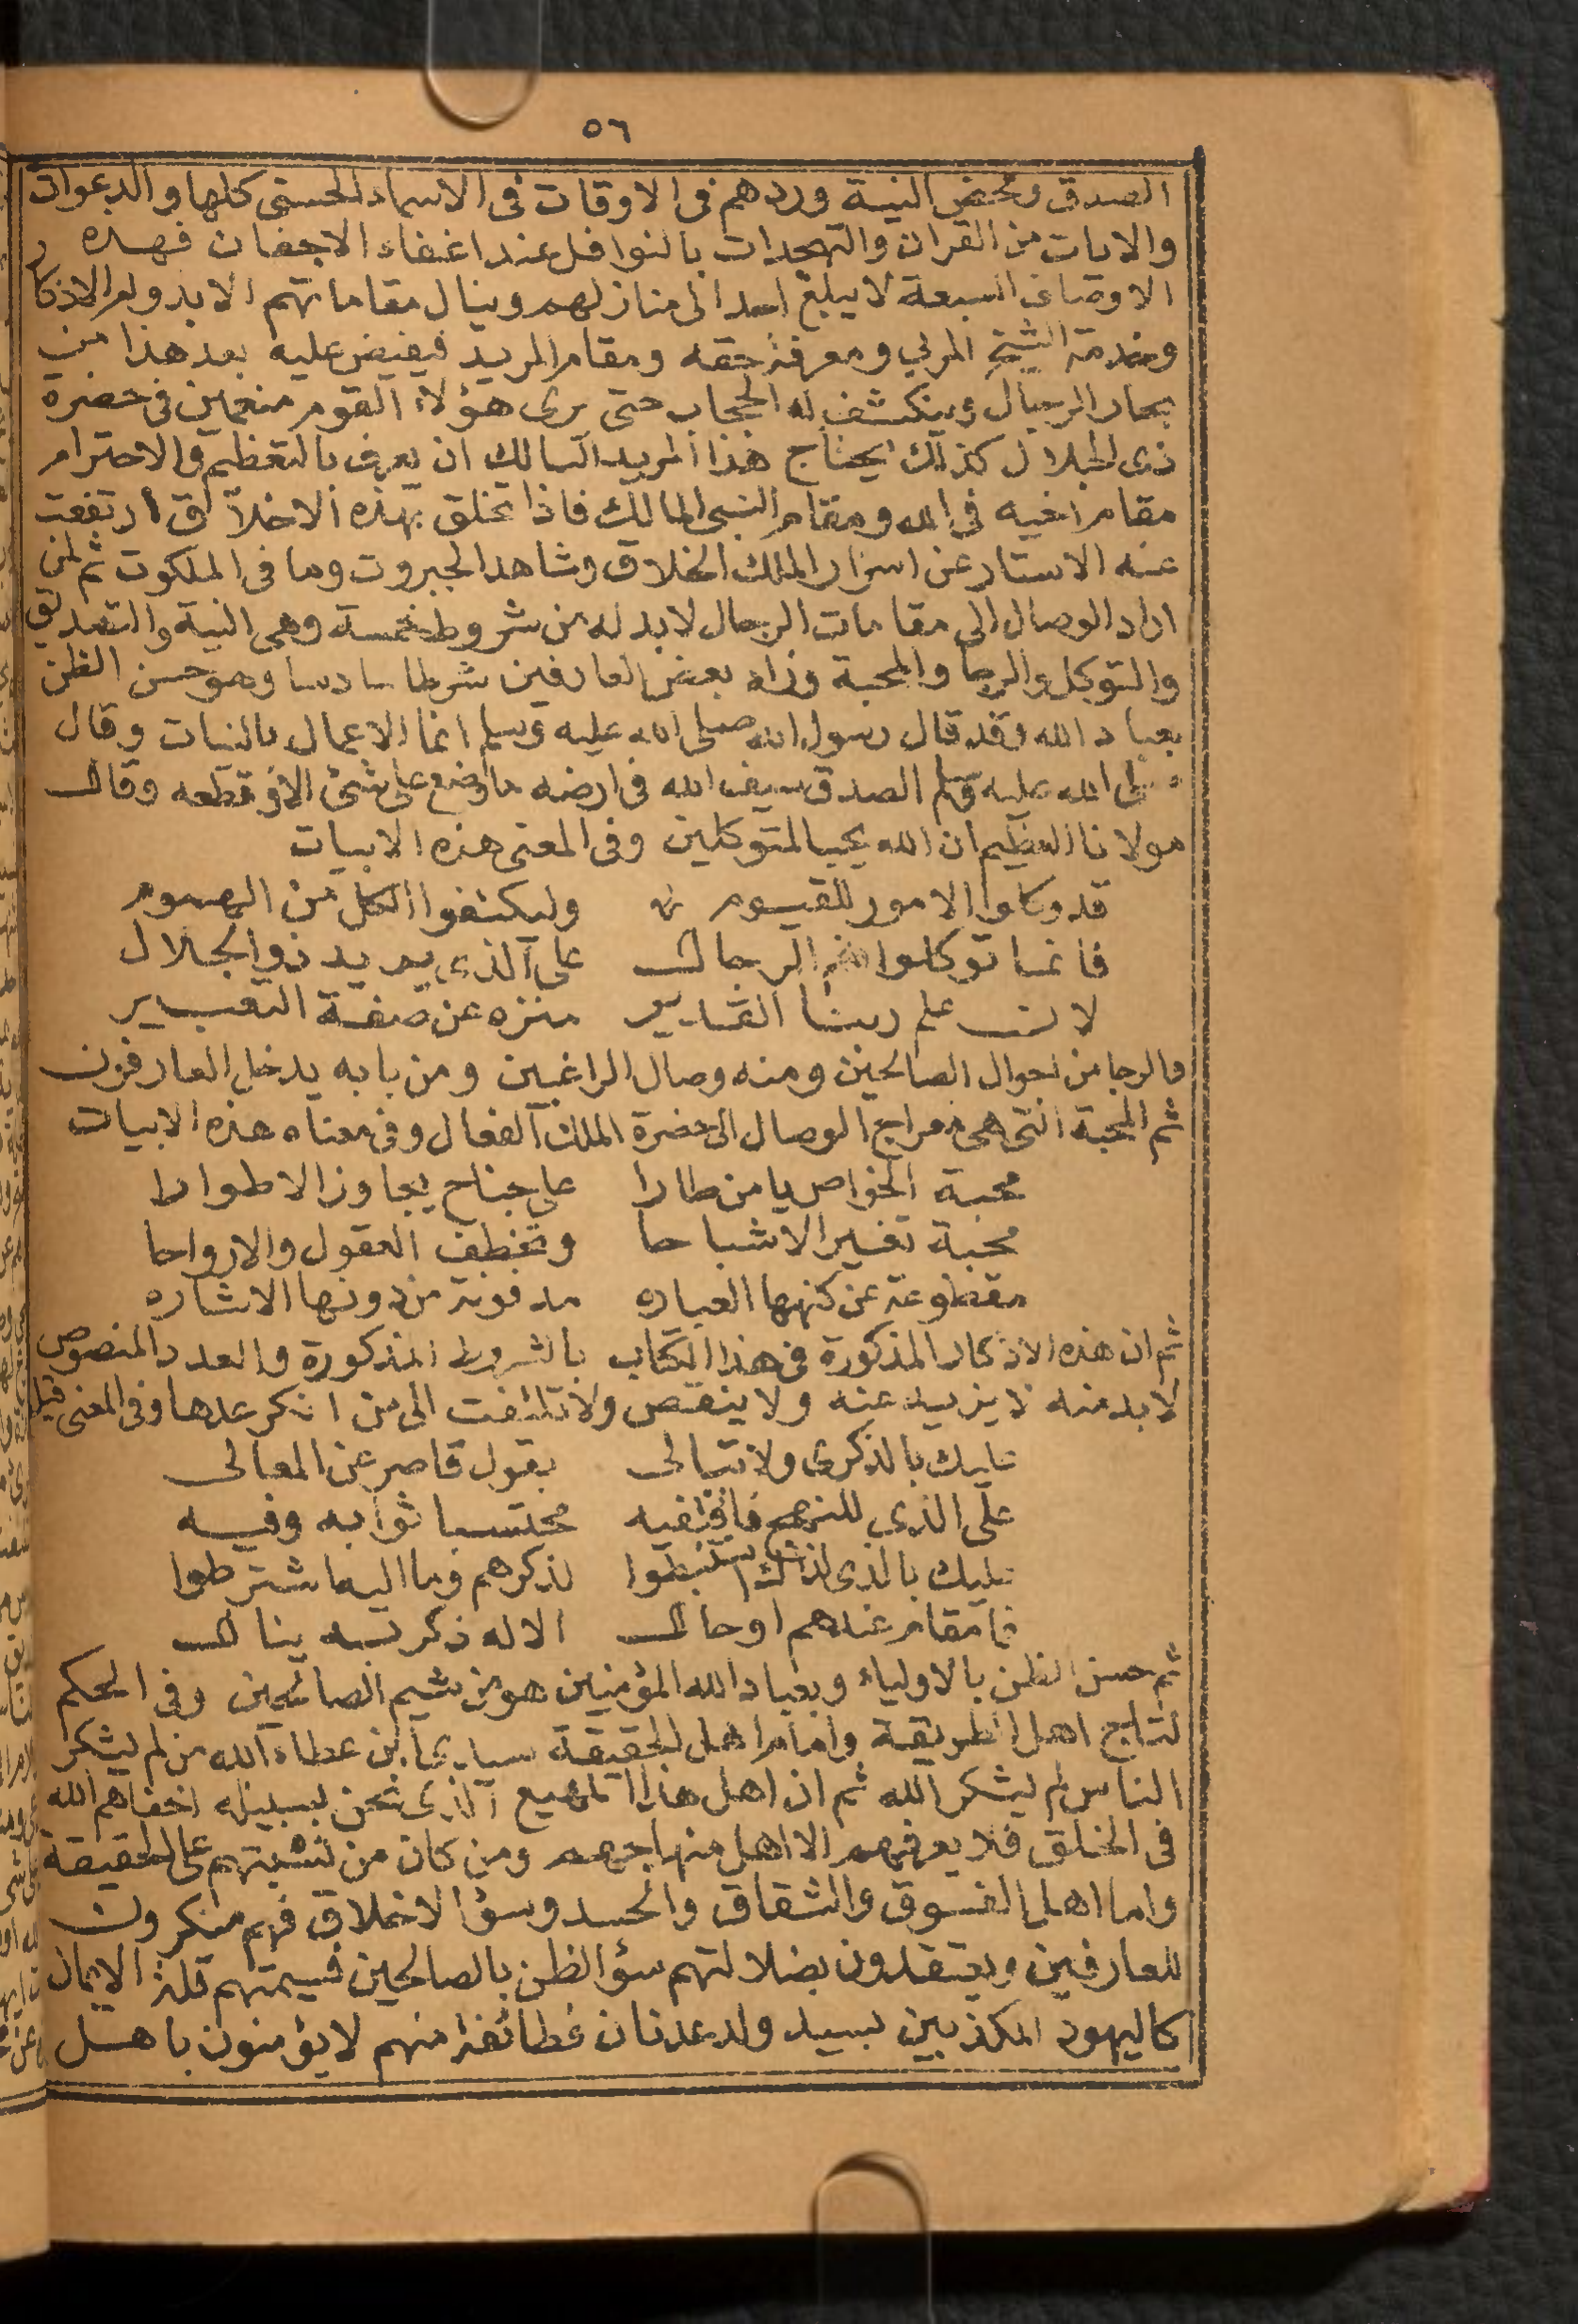 ٥٦
الصدق ومحض النية وردهم فى الاوقات فى الاسماء الحسنى كلها والدعوات
والايات من القران والتهجدات بالنوافل عند اغفاء الاجفان فهذه
الاوصاف السبعة لا يبلغ احد الى منازلهم وينال مقاماتهم الا بدوام الاذكار
وخدمة الشيخ المربي ومعرفة حقه ومقام المريد فيفيض عليه بعد هذا من
بحار الرجال وينكشف له الحجاب حتى يرى هؤلاء القوم منغمين فى حضرة
ذى الجلال كذلك يحتاج هذا المريد السالك ان يعرف بالتعظيم والاحترام
مقام اخيه فى الله ومقام النبى المالك فاذا تخلق بهذه الاخلاق ارتفعت
عنه الاستار عن اسرار الملك الخلاق وشاهد الجبروت وما فى الملكوت ثم لمن
اراد الوصال الى مقامات الرجال لا بد له من شروط خمسة وهى النية والتصديق
والتوكل والرجا والمحبة وزاد بعض العارفين شرطا سادسا وهو حسن الظن
بعباد الله وقد قال رسول الله صلى الله عليه وسلم انما الاعمال بالنيات وقال
صلى الله عليه وسلم الصدق سيف الله فى ارضه ما وضع على شئ الا وقطعه وقال
مولانا العظيم ان الله يحب المتوكلين وفى المعنى هذه الابيات
قد وكلوا الامور للقيوم وليكتفوا الكل من الهموم
فانما توكلوا الرجال على الذى يريد ذو الجلال
لان علم ربنا القدير منزه عن صفة التعبير
والرجا من احوال الصالحين ومنه وصال الراغبين ومن بابه يدخل العارفون
ثم المحبة التى هى معراج الوصال الى حضرة الملك الفعال وفى معناه هذه الابيات
محبة الخواص يا من طارا على جناح يجاوز الاطوارا
محبة تغير الاشباحا وتخطف العقول والارواحا
مقطوعة عن كنهها العباره مدفونة من دونها الاشاره
ثم ان هذه الاذكار المذكورة فى هذا الكتاب بالشروط المذكورة والعدد المنصوص
لا بد منه لا يزيد عنه ولا ينقص ولا تلتفت الى من انكر عدها وفى المعنى قيل
عليك بالذكرى ولا تبالى بقول قاصر عن المعالى
على الذى للنهج فاقتفيه محتسبا ثوابه وفيه
عليك بالذى لذاك استنبطوا لذكرهم وما اليها شترطوا
فا مقام عندهم او حال الا له ذكر به ينال
ثم حسن الظن بالاولياء وبعباد الله المؤمنين هو من شيم الصالحين وفى الحكم
لتاج اهل الطريقة وامام اهل الحقيقة سيدى ابن عطاء الله من لم يشكر
الناس لم يشكر الله ثم ان اهل هذا المهيع الذى نحن بسبيله اخفاهم الله
فى الخلق فلا يعرفهم الا اهل منهاجهم ومن كان من نسبتهم على الحقيقة
واما اهل الفسوق والشقاق والحسد وسؤ الاخلاق فهم منكرون
للعارفين ويعتقدون بضلالتهم سؤ الظن بالصالحين فسيمتهم قلة الايمان
كاليهود المكذبين لسيد ولد عدنان فطائفة منهم لا يؤمنون باهل